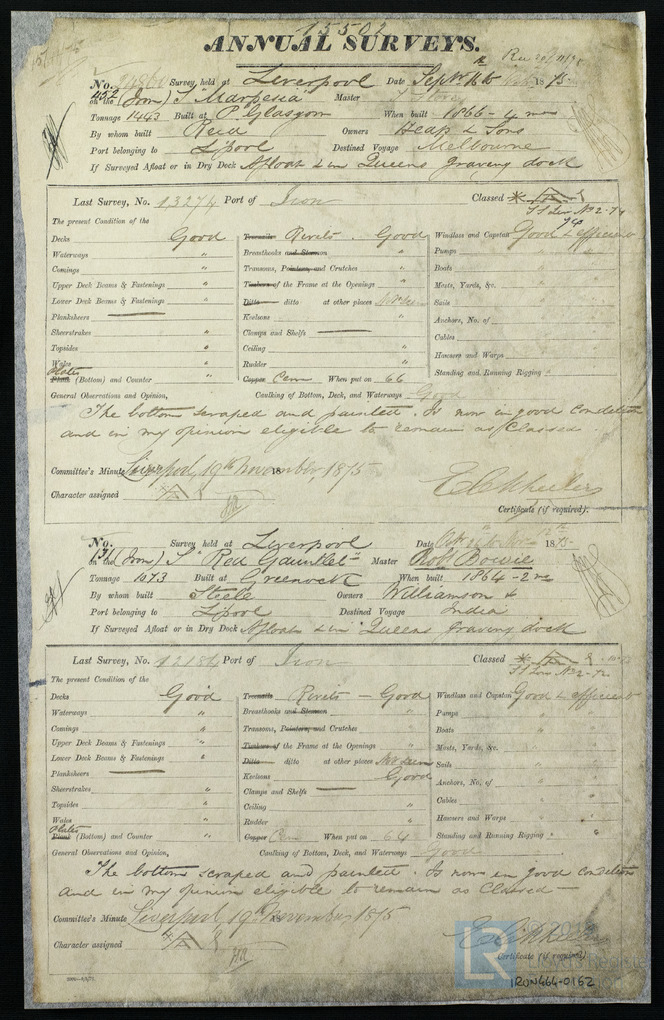 15502
ANNUAL SURVEYS.
No. Survey held at Liverpool Date Septr 16 to 1875
452 on the (Iron) S "Marpesia" Master J Storey
Tonnage 1443 Built at P. Glasgow When built 1866 - 4 mo
By whom built Reid Owners Heap & Sons
Port belonging to L'pool Destined Voyage Melbourne
If Surveyed Afloat or in Dry Dock Afloat & in Queens graving dock
Last Survey, No. 13274 Port of Iron Classed
The present Condition of the
Decks Good Treenails Rivets. Good Windlass and Capstan Good & efficient
Waterways " Breasthooks and Stemson " Pumps "
Comings " Transoms, Pointers, and Crutches " Boats "
Upper Deck Beams & Fastenings " Timbers of the Frame at the Openings " Masts, Yards, &c. "
Lower Deck Beams & Fastenings " Ditto ditto at other places Not seen Sails "
Planksheers Keelsons " Anchors, No. of "
Sheerstrakes " Clamps and Shelfs Cables "
Topsides " Ceiling " Hawsers and Warps "
Wales " Rudder " Standing and Running Rigging "
Plates Plank (Bottom) and Counter " Copper Cem When put on 66
General Observations and Opinion, Caulking of Bottom, Deck, and Waterways Good
The bottom scraped and painted. Is now in good condition
and in my opinion eligible to remain as Classed.
Committee's Minute Liverpool, 19th November, 1875
Character assigned
Certificate (if required).
No. Survey held at Liverpool Date 1875
171 on the (Iron) S "Red Gauntlet" Master Robt Bowie
Tonnage 1073 Built at Greenock When built 1864 - 2 mo
By whom built Steele Owners Williamson &
Port belonging to L'pool Destined Voyage India
If Surveyed Afloat or in Dry Dock Afloat & in Queens graving dock
Last Survey, No. 12184 Port of Iron Classed
The present Condition of the
Decks Good Treenails Rivets - Good Windlass and Capstan Good & efficient
Waterways " Breasthooks and Stemson " Pumps "
Comings " Transoms, Pointers, and Crutches " Boats "
Upper Deck Beams & Fastenings " Timbers of the Frame at the Openings " Masts, Yards, &c. "
Lower Deck Beams & Fastenings " Ditto ditto at other places Not seen Sails "
Planksheers Keelsons Good Anchors, No. of "
Sheerstrakes " Clamps and Shelfs Cables "
Topsides " Ceiling " Hawsers and Warps "
Wales " Rudder " Standing and Running Rigging "
Plates Plank (Bottom) and Counter " Copper Cem When put on 64
General Observations and Opinion, Caulking of Bottom, Deck, and Waterways Good
The bottom scraped and painted. Is now in good condition
and in my opinion eligible to remain as Classed -
Committee's Minute Liverpool 19th November 1875
Character assigned
Certificate (if required)
LR
IRON464-0162